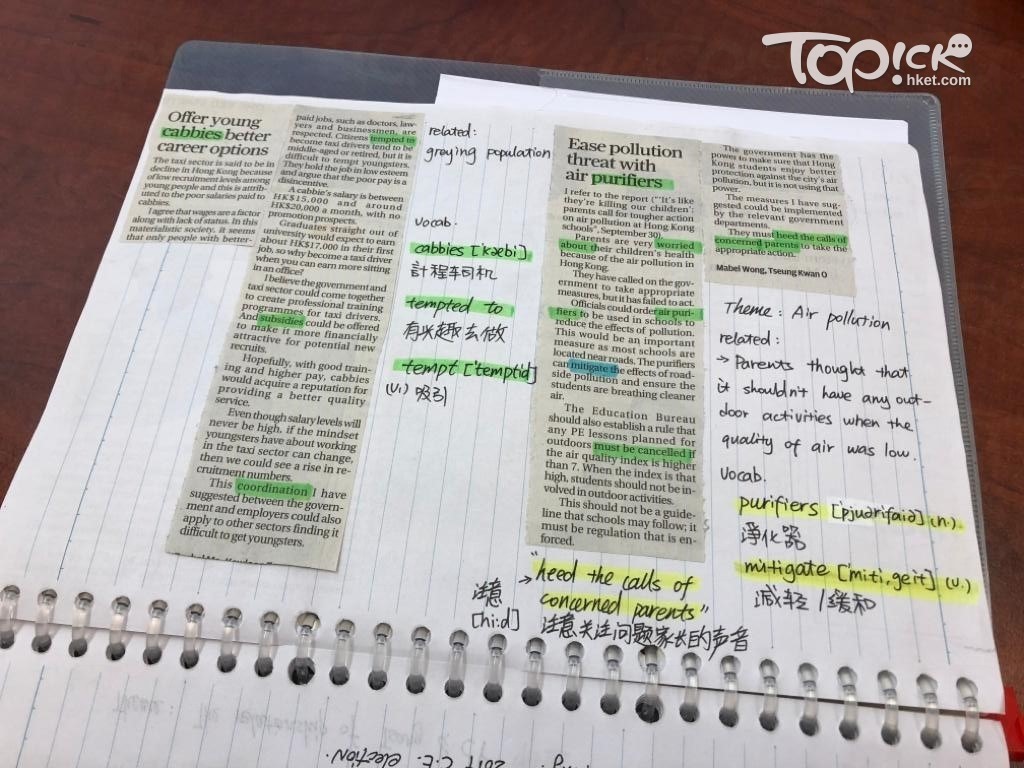 TOPick
hket.com
Offer young
cabbies better
career options
The taxi sector is said to be in
decline in Hong Kong because
of low recruitment levels among
young people and this is attrib-
uted to the poor salaries paid to
cabbies.
I agree that wages are a factor
along with lack of status. In this
materialistic society, it seems
that only people with better-
paid jobs, such as doctors, law-
yers and businessmen, are
respected. Citizens tempted to
become taxi drivers tend to be
middle-aged or retired, but it is
difficult to tempt youngsters.
They hold the job in low esteem
and argue that the poor pay is a
disincentive.
A cabbie's salary is between
HK$15,000 and around
HK$20,000 a month, with no
promotion prospects.
Graduates straight out of
university would expect to earn
about HK$17,000 in their first
job, so why become a taxi driver
when you can earn more sitting
in an office?
I believe the government and
taxi sector could come together
to create professional training
programmes for taxi drivers.
And subsidies could be offered
to make it more financially
attractive for potential new
recruits.
Hopefully, with good train-
ing and higher pay, cabbies
would acquire a reputation for
providing a better quality
service.
Even though salary levels will
never be high, if the mindset
youngsters have about working
in the taxi sector can change,
then we could see a rise in re-
cruitment numbers.
This coordination I have
suggested between the govern-
ment and employers could also
apply to other sectors finding it
difficult to get youngsters.
related:
graying population
vocab.
cabbies [kæbi]
計程车司机
tempted to
有兴趣去做
tempt [temptid]
(v.) 吸引
Ease pollution
threat with
air purifiers
I refer to the report ("'It's like
they're killing our children':
parents call for tougher action
on air pollution at Hong Kong
schools", September 30).
Parents are very worried
about their children's health
because of the air pollution in
Hong Kong.
They have called on the gov-
ernment to take appropriate
measures, but it has failed to act.
Officials could order air puri-
fiers to be used in schools to
reduce the effects of pollution.
This would be an important
measure as most schools are
located near roads. The purifiers
can mitigate the effects of road-
side pollution and ensure the
students are breathing cleaner
air.
The Education Bureau
should also establish a rule that
any PE lessons planned for
outdoors must be cancelled if
the air quality index is higher
than 7. When the index is that
high, students should not be in-
volved in outdoor activities.
This should not be a guide-
line that schools may follow; it
must be regulation that is en-
forced.
The government has the
power to make sure that Hong
Kong students enjoy better
protection against the city's air
pollution, but it is not using that
power.
The measures I have sug-
gested could be implemented
by the relevant government
departments.
They must heed the calls of
concerned parents to take the
appropriate action.
Mabel Wong, Tseung Kwan O
Theme: Air pollution
related:
→ Parents thought that
it shouldn't have any out-
door activities when the
quality of air was low.
vocab.
purifiers [pjuərifaiə] (n.)
淨化器
mitigate ['miti,geit] (v.)
减轻/缓和
"heed the calls of
concerned parents"
注意
[hi:d]
注意关注问题家长的声音
2017 C.E. election.